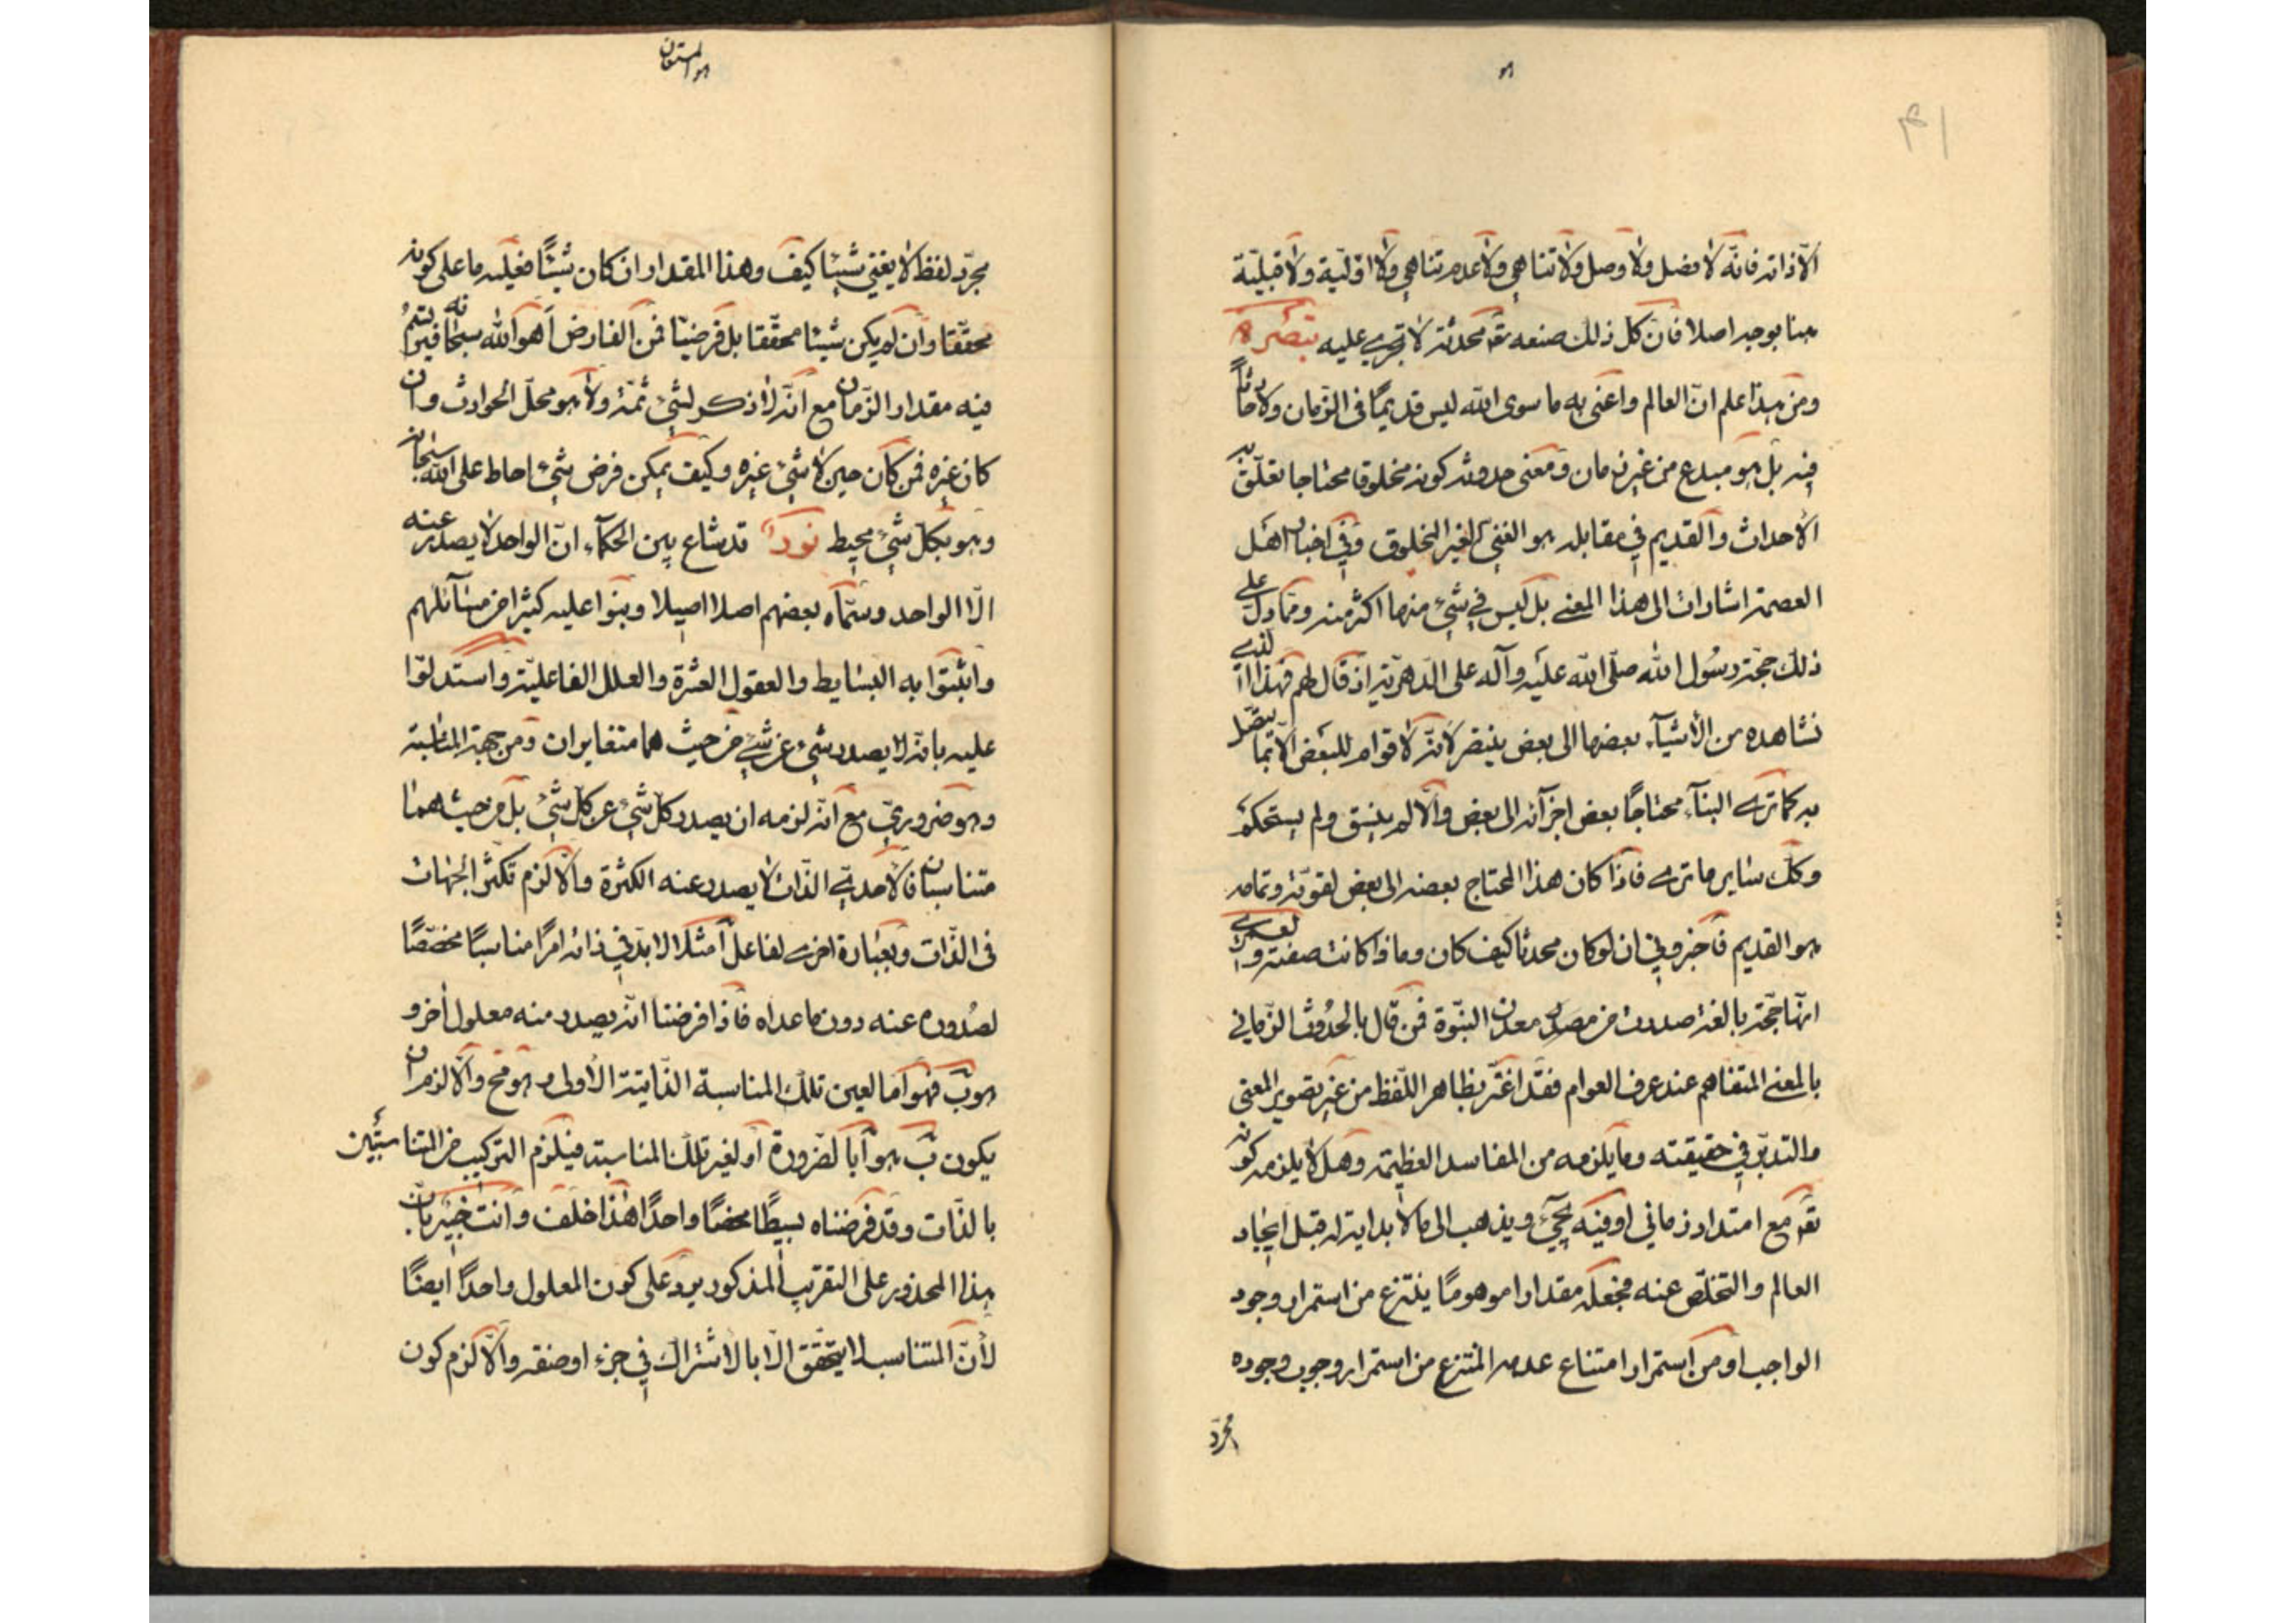 هو
٤١
الّا ذاته فانّه لا فضل ولا وصل ولا تناهي ولا عدم تناهي ولا اوّليّة ولا قبليّة
هنا بوجه اصلا فان كل ذلك صنعه تع محدثة لا تجرى عليه تبصرة
ومن هذا اعلم انّ العالم واعنى به ما سوى الله ليس قديمًا فى الزمان ولا حادثًا
فيه بل هو مبدع من غير زمان ومعنى حدوثه كونه مخلوقا محتاجا تعلّق به
الأحداث والقديم في مقابله هو الغني الغير المخلوق وفي اخبار اهل
العصمة اشارات الى هذا المعنى بل ليس في شئ منها اكثر منه وممّا دلّ على
ذلك حجّة رسول الله صلّى الله عليه وآله على الدّهريّة اذ قال لهم فهذا الّذى
نشاهده من الأشيآء بعضها الى بعض يفتقر لانّه لا قوام للبعض الّا بما يتصل
به كما ترى البنآء محتاجًا بعض اجزآئه الى بعض والّا لم يتسق ولم يستحكم
وكك ساير ما ترى فاذا كان هذا المحتاج بعضه الى بعض لقوّته وتمامه
هو القديم فاخبروني ان لو كان محدثا كيف كان وماذا كانت صفته ولعمرى
انّها حجّة بالغة صدرت من مصدر معدن النبّوة فمن قال بالحدُوث الزمانى
بالمعنى المتفاهم عند عرف العوام فقد اغترّ بظاهر اللّفظ من غير تصوير المعنى
والتدبّر في حقيقته وما يلزمه من المفاسد العظيمة وهل لا يلزمه كونه
تع مع امتداد زماني او فيه يجيء ويذهب الى ما لا بداية له قبل ايجاد
العالم والتخلّص عنه بجعله مقدارا موهومًا ينتزع من استمرار وجود
الواجب او من استمرار امتناع عدمه المنتزع من استمرار وجوب وجوده
مجرّد
هو المستعان
مجرّد لفظ لا يغني شيئا كيف وهذا المقدار ان كان شيئًا فعليه ما على كونه
محقّقا وان لم يكن شيئا محققا بل فرضيّا فمن الفارض اهو الله سبحانه فيرتسم
فيه مقدار الزمان مع انّه لا ذكر لشئ ثمّة ولا هو محلّ الحوادث وان
كان غيره فمن كان حين لا شئ غيره وكيف يمكن فرض شئ احاط على الله سبحانه
وهو بكلّ شئ محيط نور قد شاع بين الحكمآء انّ الواحد لا يصدر عنه
الّا الواحد وسمّاه بعضهم اصلا اصيلا وبنوا عليه كثيرا من مسآئلهم
واثبتوا به البسايط والعقول العشرة والعلل الفاعليّة واستدلّوا
عليه بانّه لا يصدر شئ عن شئ من حيث هما متغايران ومن جهة المناسبة
وهو ضروريّ مع انّه لزمه ان يصدر كل شئ عن كل شئ بل من حيث هما
متناسبان فالأحديّ الذات لا يصدر عنه الكثرة والّا لزم تكثّر الجهات
فى الذّات وبعبارة اخرى لفاعل آ مثلا لا بدّ في ذاته امرًا مناسبًا مخصّصًا
لصدُوره عنه دون ما عداه فاذا فرضنا انّه يصدر منه معلول آخر و
هو ب فهو امّا لعين تلك المناسبة الذّاتية الأولى وهو مح والّا لزم ان
يكون ب هو آ بالضّرورة او لغير تلك المناسبة فيلزم التركيب من المتناسبتين
بالذّات وقد فرضناه بسيطًا محضًا واحدًا هذا خلف وانت خبير بانّ
هذا المحذور على التقريب المذكور يرد على كون المعلول واحدًا ايضًا
لأنّ المتناسب لا يتحقق الّا بالاشتراك في جزء او صفة والّا لزم كون